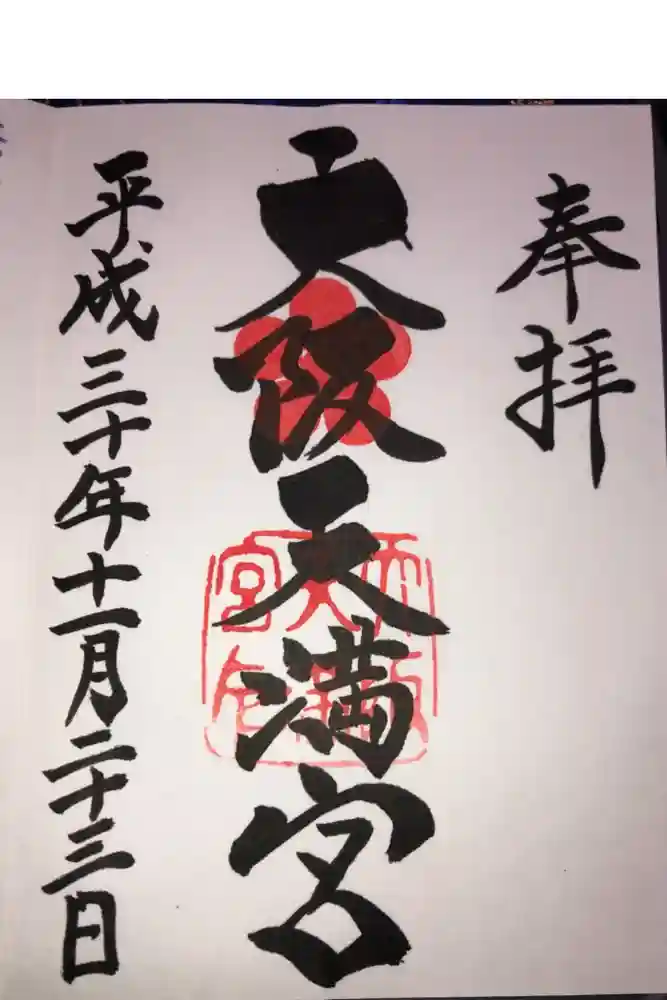 奉拝
大阪天満宮
平成三十年十一月二十三日